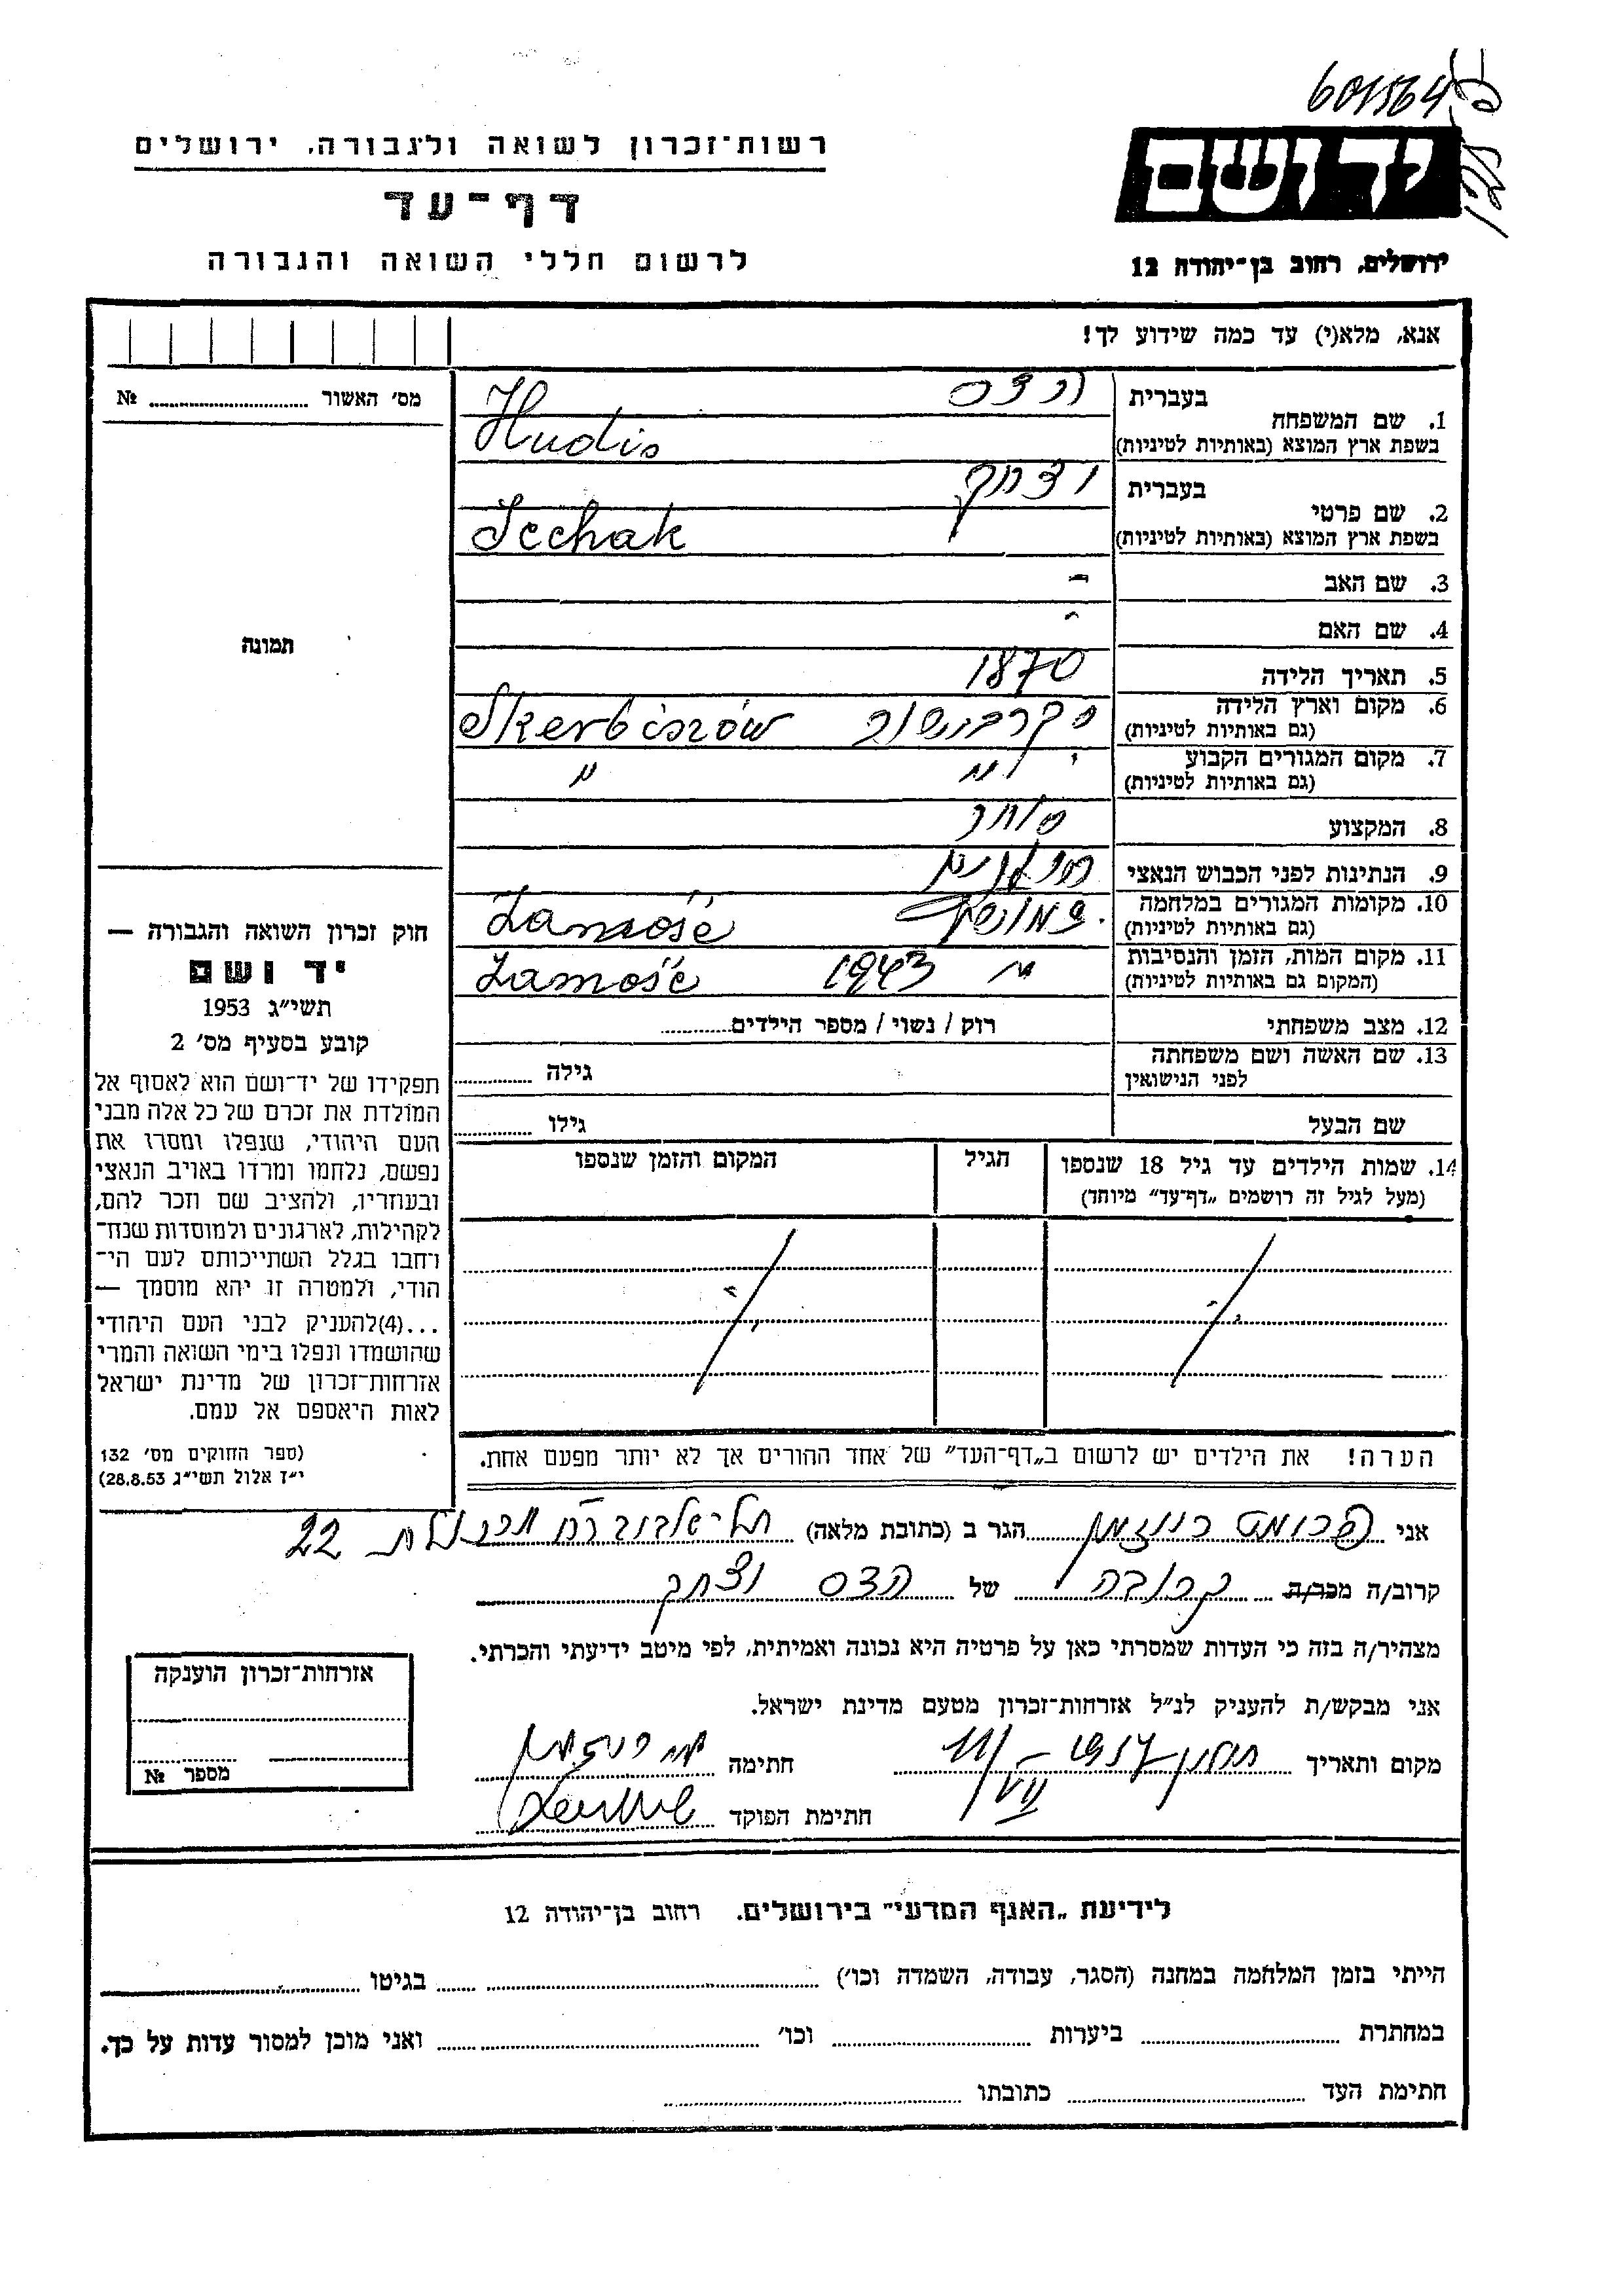 601564
רשות־זכרון לשואה ולגבורה, ירושלים
דף־עד
לרשום חללי השואה והגבורה
יד ושם
ירושלים, רחוב בן־יהודה 12
אנא, מלא(י) עד כמה שידוע לך!
מס׳ האשור № 
1. שם המשפחה
בעברית
בשפת ארץ המוצא (באותיות לטיניות)
Hudis
2. שם פרטי
בעברית
יצחק
בשפת ארץ המוצא (באותיות לטיניות)
Icchak
3. שם האב -
4. שם האם -
5. תאריך הלידה 1870
6. מקום וארץ הלידה
(גם באותיות לטיניות)
Skerbiszów
7. מקום המגורים הקבוע
(גם באותיות לטיניות)
״ ״
8. המקצוע סוחר
9. הנתינות לפני הכבוש הנאצי
10. מקומות המגורים במלחמה
(גם באותיות לטיניות)
Zamość
11. מקום המות, הזמן והנסיבות
(המקום גם באותיות לטיניות)
״ 1943 Zamość
12. מצב משפחתי רוק / נשוי / מספר הילדים
13. שם האשה ושם משפחתה
לפני הנישואין
גילה
שם הבעל גילו
14. שמות הילדים עד גיל 18 שנספו
(מעל לגיל זה רושמים „דף־עד״ מיוחד)
הגיל
המקום והזמן שנספו
הערה! את הילדים יש לרשום ב„דף־העד״ של אחד ההורים אך לא יותר מפעם אחת.
תמונה
חוק זכרון השואה והגבורה —
יד ושם
תשי״ג 1953
קובע בסעיף מס׳ 2
תפקידו של יד־ושם הוא לאסוף אל
המולדת את זכרם של כל אלה מבני
העם היהודי, שנפלו ומסרו את
נפשם, נלחמו ומרדו באויב הנאצי
ובעוזריו, ולהציב שם וזכר להם,
לקהילות, לארגונים ולמוסדות שנח־
רחבו בגלל השתייכותם לעם הי־
הודי, ולמטרה זו יהא מוסמך —
...(4)להעניק לבני העם היהודי
שהושמדו ונפלו בימי השואה והמרי
אזרחות־זכרון של מדינת ישראל
לאות היאספם אל עמם.
(ספר החוקים מס׳ 132
י״ד אלול תשי״ג 28.8.53)
אני הגר ב (כתובת מלאה) 22
קרוב/ה מכר/ת קרובה של הדס יצחק
מצהיר/ה בזה כי העדות שמסרתי כאן על פרטיה היא נכונה ואמיתית, לפי מיטב ידיעתי והכרתי.
אני מבקש/ת להעניק לנ״ל אזרחות־זכרון מטעם מדינת ישראל.
מקום ותאריך חולון 1957 11/VII חתימה
חתימת הפוקד
אזרחות־זכרון הוענקה
מספר №
לידיעת „האגף המדעי״ בירושלים. רחוב בן־יהודה 12
הייתי בזמן המלחמה במחנה (הסגר, עבודה, השמדה וכו׳) בגיטו
במחתרת ביערות וכו׳ ואני מוכן למסור עדות על כך.
חתימת העד כתובתו